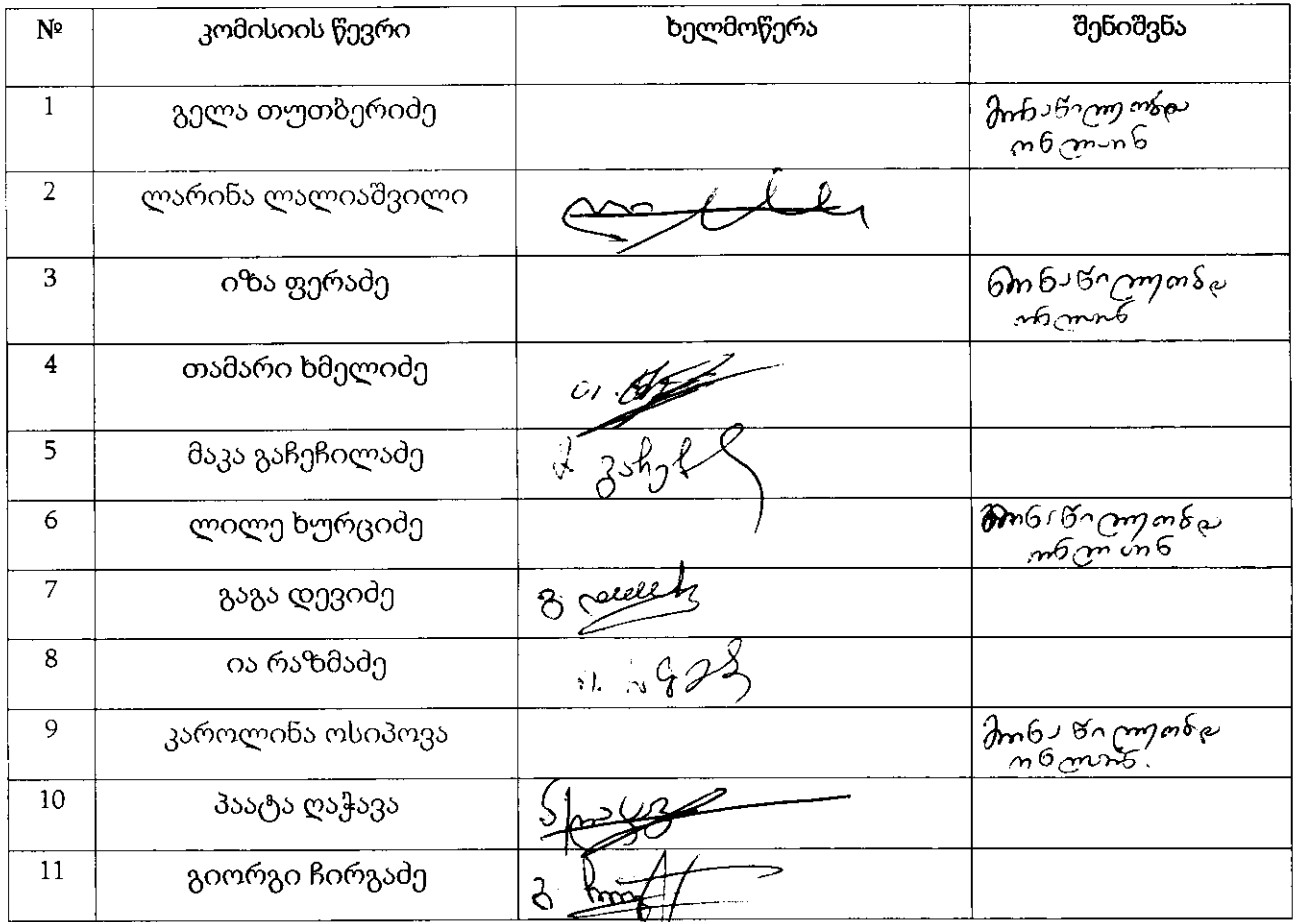 № კომისიის წევრი ხელმოწერა შენიშვნა
1 გელა თუთბერიძე მონაწილეობდა
ონლაინ
2 ლარინა ლალიაშვილი
3 იზა ფერაძე მონაწილეობდა
ონლაინ
4 თამარი ხმელიძე
5 მაკა გაჩეჩილაძე
6 ლილე ხურციძე მონაწილეობდა
ონლაინ
7 გაგა დევიძე
8 ია რაზმაძე
9 კაროლინა ოსიპოვა მონაწილეობდა
ონლაინ.
10 პაატა ღაჭავა
11 გიორგი ჩირგაძე